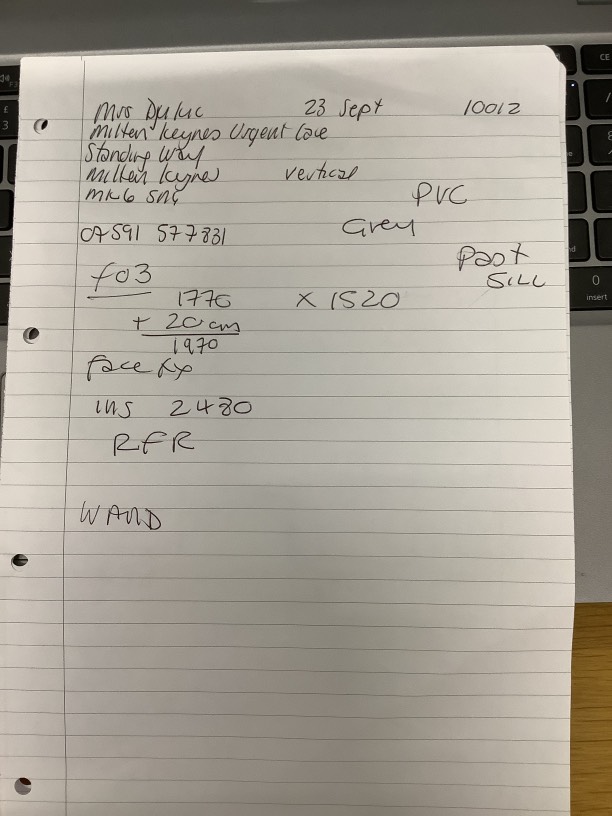 Mrs Duluc 23 Sept 10012
Milten Keynes Urgent Care
Standing Way
Milten Keynes vertical
MK6 5NG PVC
07591 577831 Grey
Past
f03 SILL
1770 x 1520
+ 20cm
1970
face fix
ins 2480
RFR
WAND